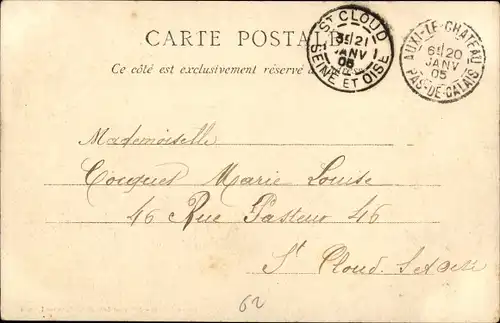 CARTE POSTALE
Ce côté est exclusivement réservé
ST CLOUD
3E 21
JANV
05
SEINE ET OISE
AUXI-LE-CHATEAU
6E 20
JANV
05
PAS-DE-CALAIS
Mademoiselle
Cocques Marie Louise
46 Rue Pasteur 46
St Cloud. S et Oise
62